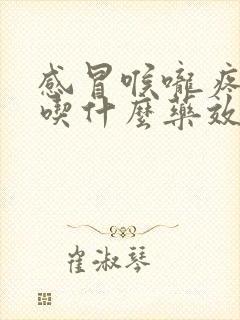 感冒喉嚨疼
喫什麼藥效
崔淑琴